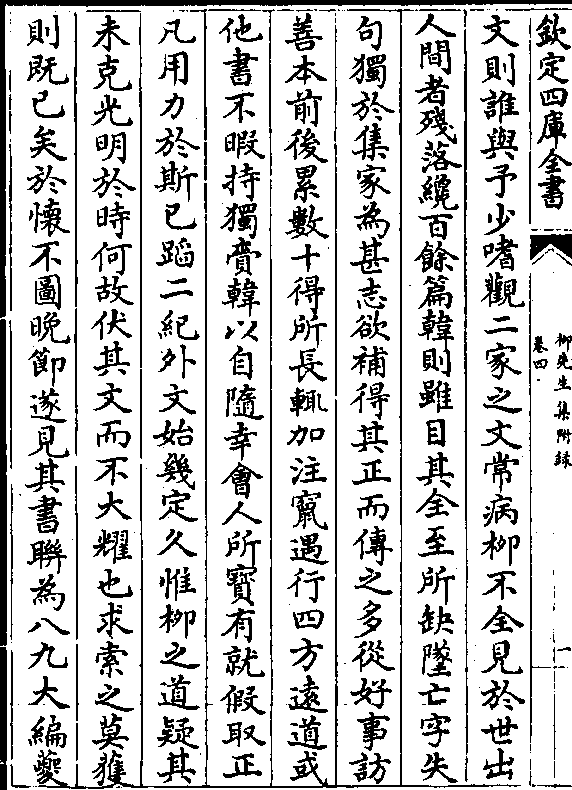 欽定四庫全書
柳先生集附録
卷四
一
文則誰與予少嗜觀二家之文常病柳不全見於世出
人間者殘落纔百餘篇韓則雖目其全至所缺墜亡字失
句獨於集家為甚志欲補得其正而傳之多從好事訪
善本前後累數十得所長輒加注竄遇行四方遠道或
他書不暇持獨賫韓以自隨幸會人所寳有就假取正
凡用力於斯已蹈二紀外文始幾定久惟柳之道疑其
未克光明於時何故伏其文而不大耀也求索之莫獲
則既已矣於懷不圖晚節遂見其書聯為八九大編夔